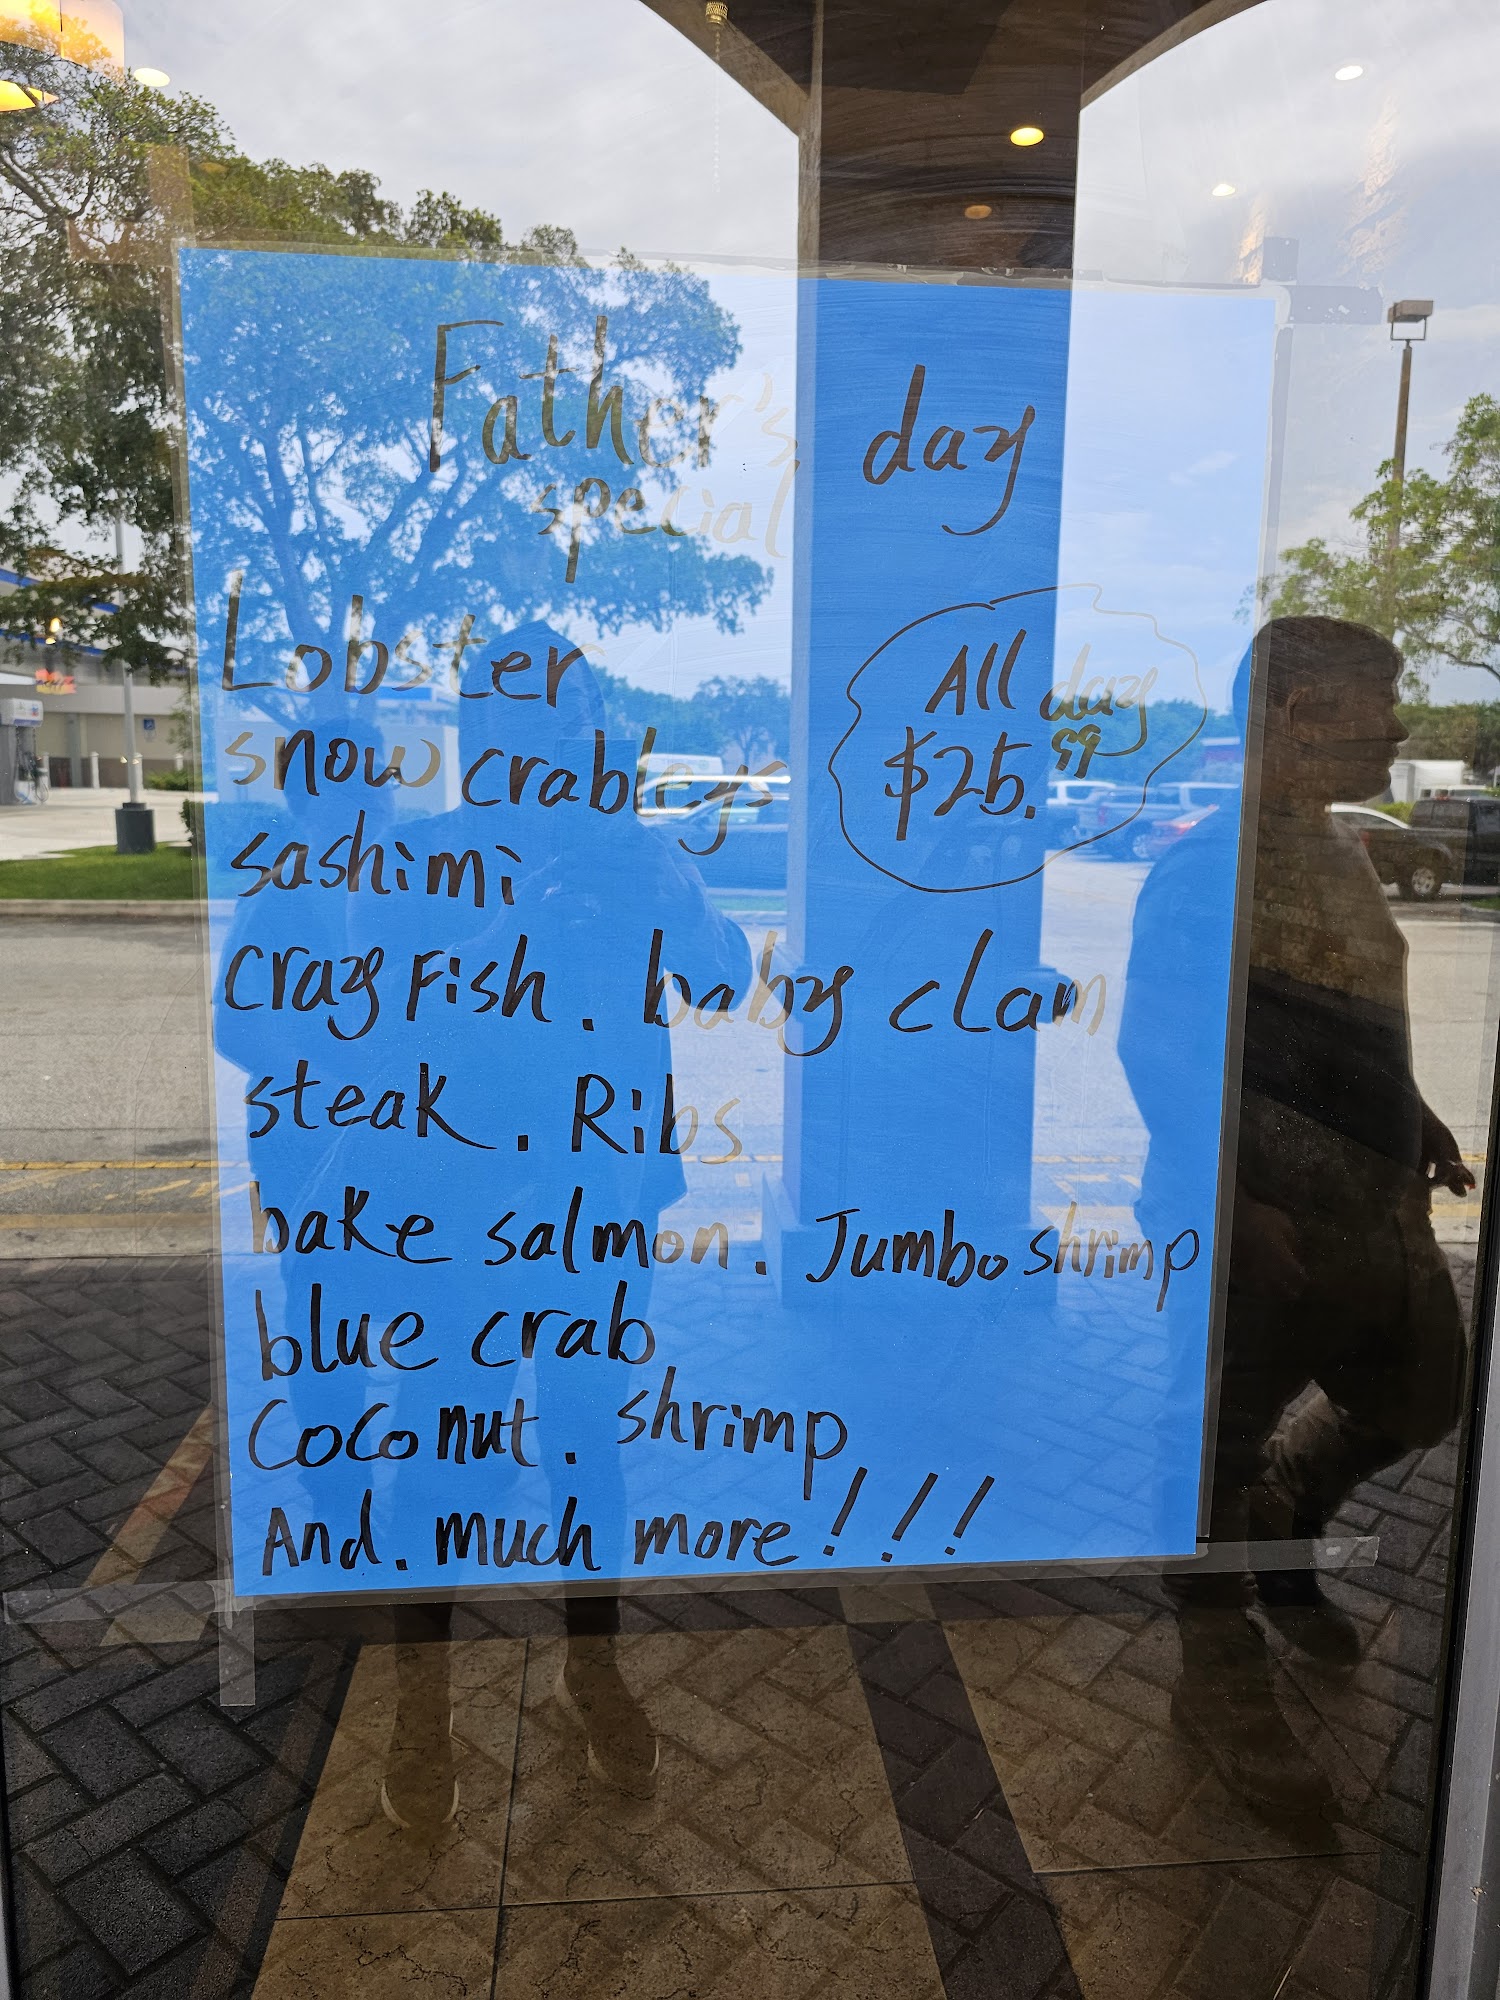 Father's day
special
Lobster
snow crablegs
All day
$25.99
sashimi
crayFish. baby clam
steak. Ribs
bake salmon. Jumbo shrimp
blue crab
Coconut. shrimp
And. much more!!!